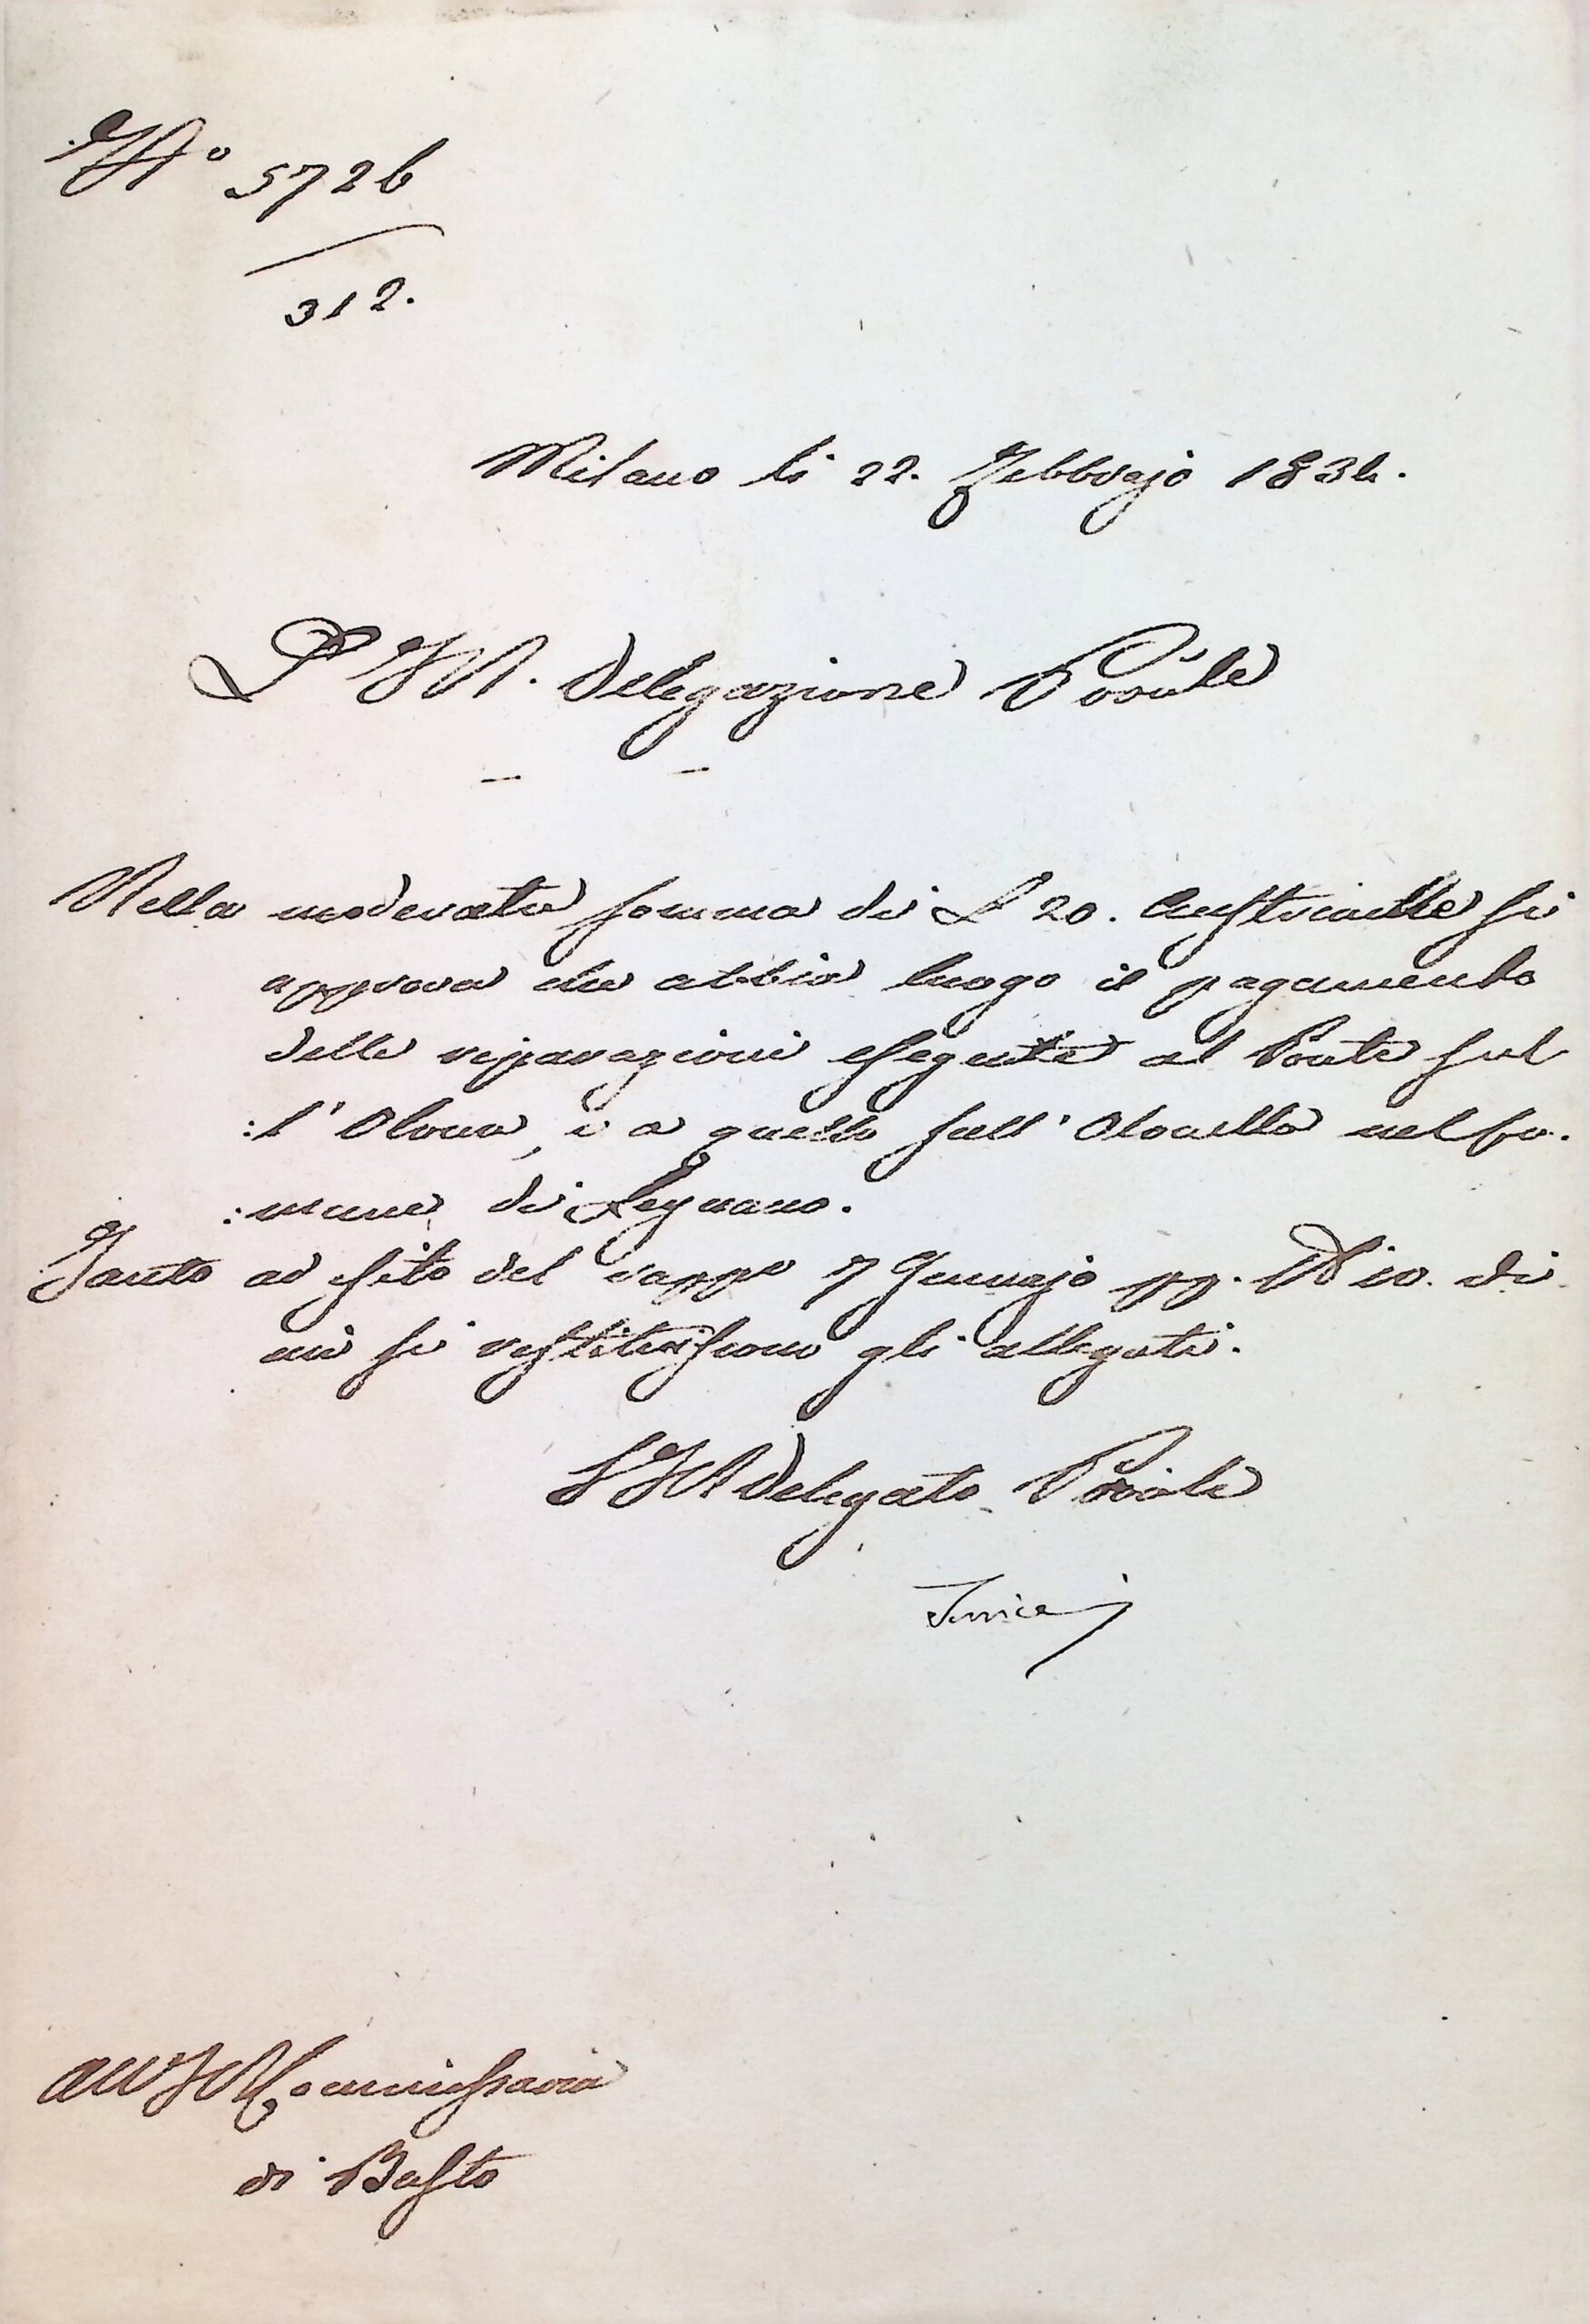 N° 5726
312.
Milano li 22. Febbrajo 1834.
L' I. R. Delegazione Provle
Nella moderata somma di L 20. Austriache si
approva che abbia luogo il pagamento
delle riparazioni eseguite al Ponte sul
:l' Olona, e a quello sull' Olonella nel Co.
:mune di Legnano.
Tanto ad esito del rappo 7 Gennajo pp. N 10. di
cui si restituiscono gli allegati.
L' I R Delegato Provle
All' I R Commissaria
di Busto